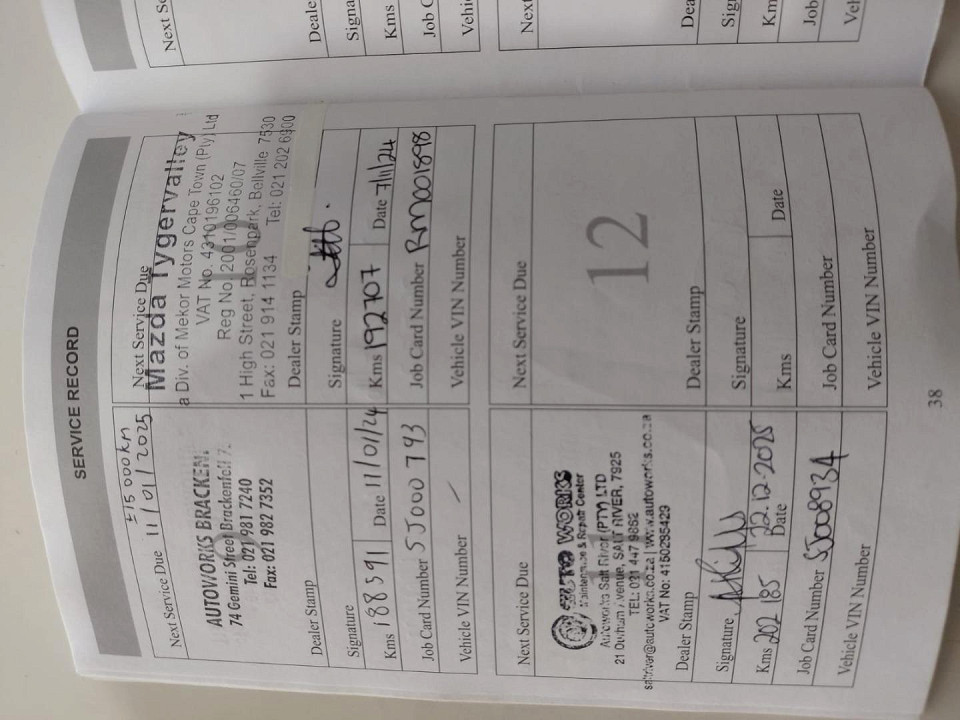 SERVICE RECORD
±15 000km
Next Service Due 11/01/2025
AUTOWORKS BRACKEN
74 Gemini Street Brackenfell 7
Tel: 021 981 7240
Fax: 021 982 7352
Dealer Stamp
Signature
Kms 188591 Date 11/01/24
Job Card Number SJ000793
Vehicle VIN Number
Next Service Due
Mazda Tygervalley
a Div. of Mekor Motors Cape Town (Pty) Ltd
VAT No. 4310196102
Reg No. 2001/006460/07
1 High Street, Rosenpark, Bellville 7530
Fax: 021 914 1134 Tel: 021 202 6900
Dealer Stamp
Signature
Kms 192707 Date 7/11/24
Job Card Number RM001898
Vehicle VIN Number
Next Service Due
11
AUTO WORKS
Maintenance & Repair Center
Autoworks Salt River (PTY) LTD
21 Durham Avenue, SALT RIVER, 7925
TEL: 021 447 9852
saltriver@autoworks.co.za | www.autoworks.co.za
VAT No: 4150295429
Dealer Stamp
Signature
Kms 202 185 Date 22-12-2025
Job Card Number SJ008934
Vehicle VIN Number
Next Service Due
12
Dealer Stamp
Signature
Kms Date
Job Card Number
Vehicle VIN Number
38